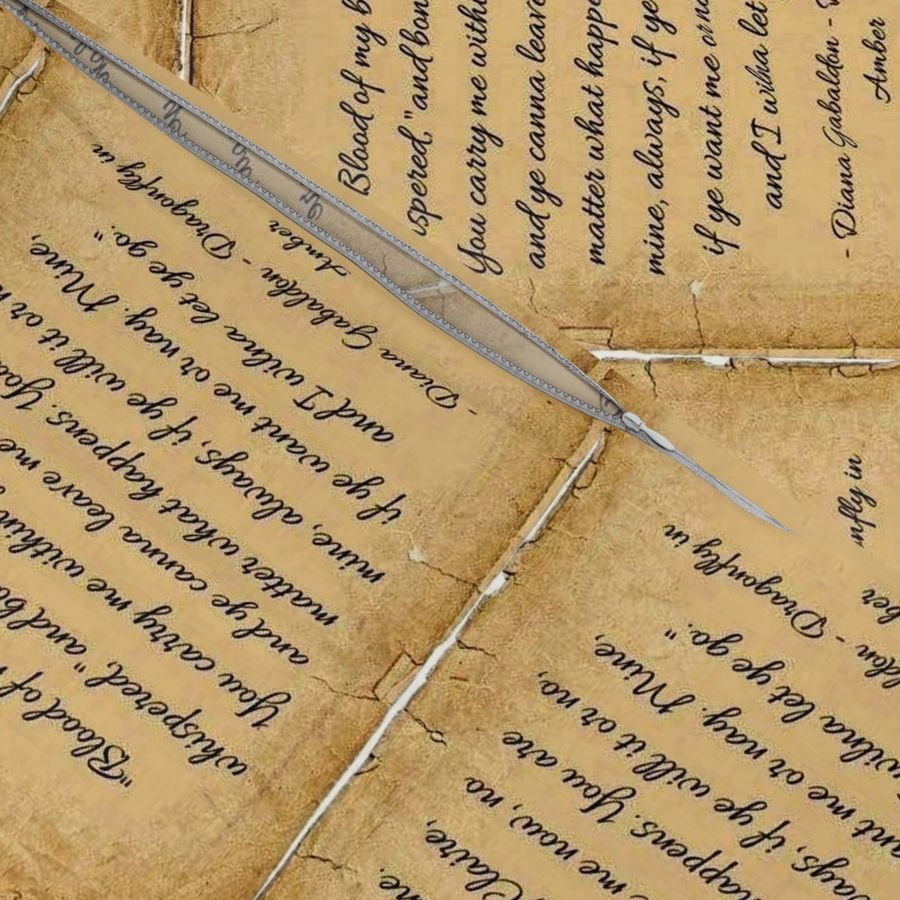 Blood of my b
spered, "and bon
You carry me withi
and ye canna leave
matter what happe
mine, always, if ye
if ye want me or n
and I wilna let
- Diana Gabaldon -
Amber
"Blood of
whispered, "and bo
You carry me within
and ye canna leave me
matter what happens. You
mine, always, if ye will it or n
if ye want me or nay. Mine,
and I wilna let ye go."
- Diana Gabaldon - Dragonfly in
Amber
nfly in
me,
Claire,
e me now, no
happens. You are
ays, if ye will it or no,
ant me or nay. Mine,
wilna let ye go."
ldon - Dragonfly in
ber